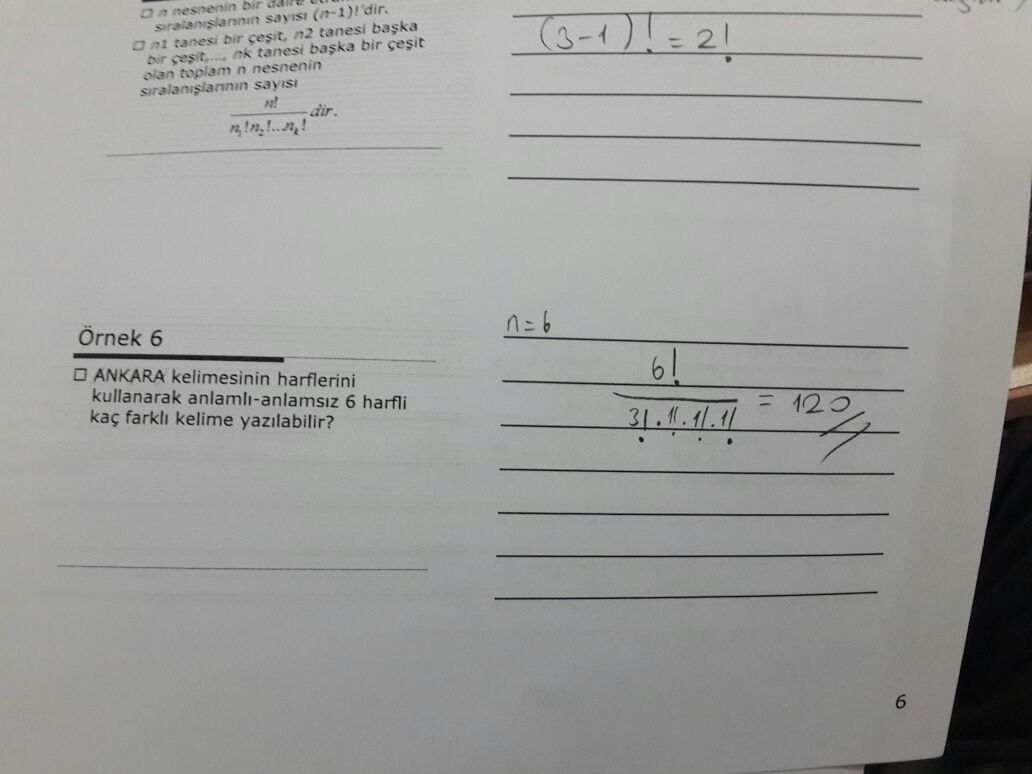 □ n nesnenin bir daire
sıralanışlarının sayısı (n-1)!'dir.
□ n1 tanesi bir çeşit, n2 tanesi başka
bir çeşit,..., nk tanesi başka bir çeşit
olan toplam n nesnenin
sıralanışlarının sayısı
n!
n₁!n₂!...nₖ! dir.
(3-1)! = 2!
Örnek 6
□ ANKARA kelimesinin harflerini
kullanarak anlamlı-anlamsız 6 harfli
kaç farklı kelime yazılabilir?
n=6
6!
3!.1!.1!.1! = 120
6